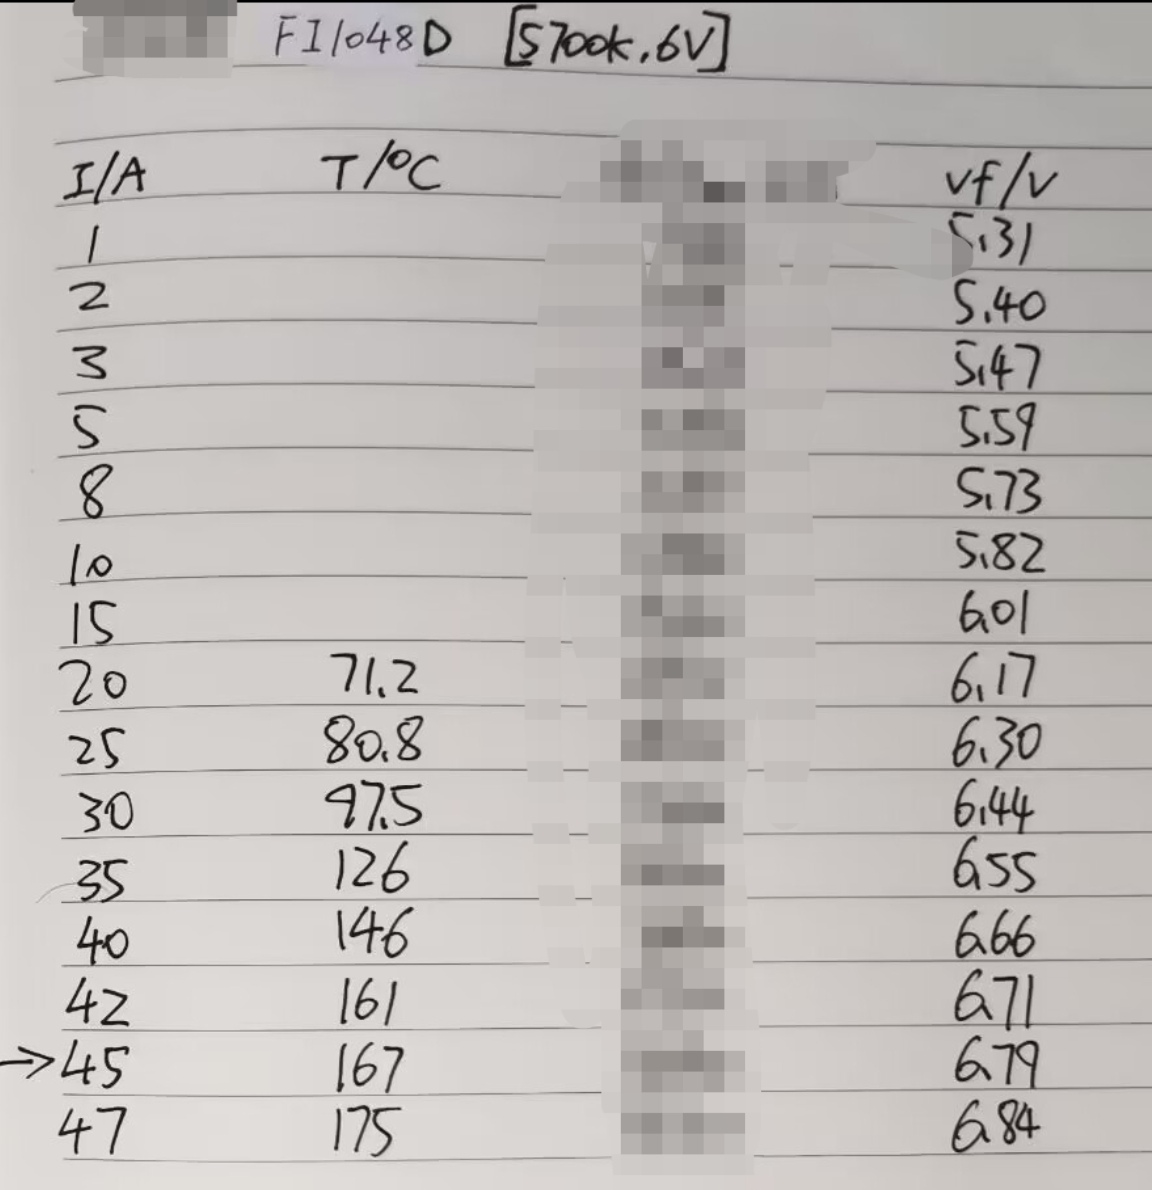 FI1048D [5700k.6V]
I/A T/°C Vf/V
1 5.31
2 5.40
3 5.47
5 5.59
8 5.73
10 5.82
15 6.01
20 71.2 6.17
25 80.8 6.30
30 97.5 6.44
35 126 6.55
40 146 6.66
42 161 6.71
→45 167 6.79
47 175 6.84